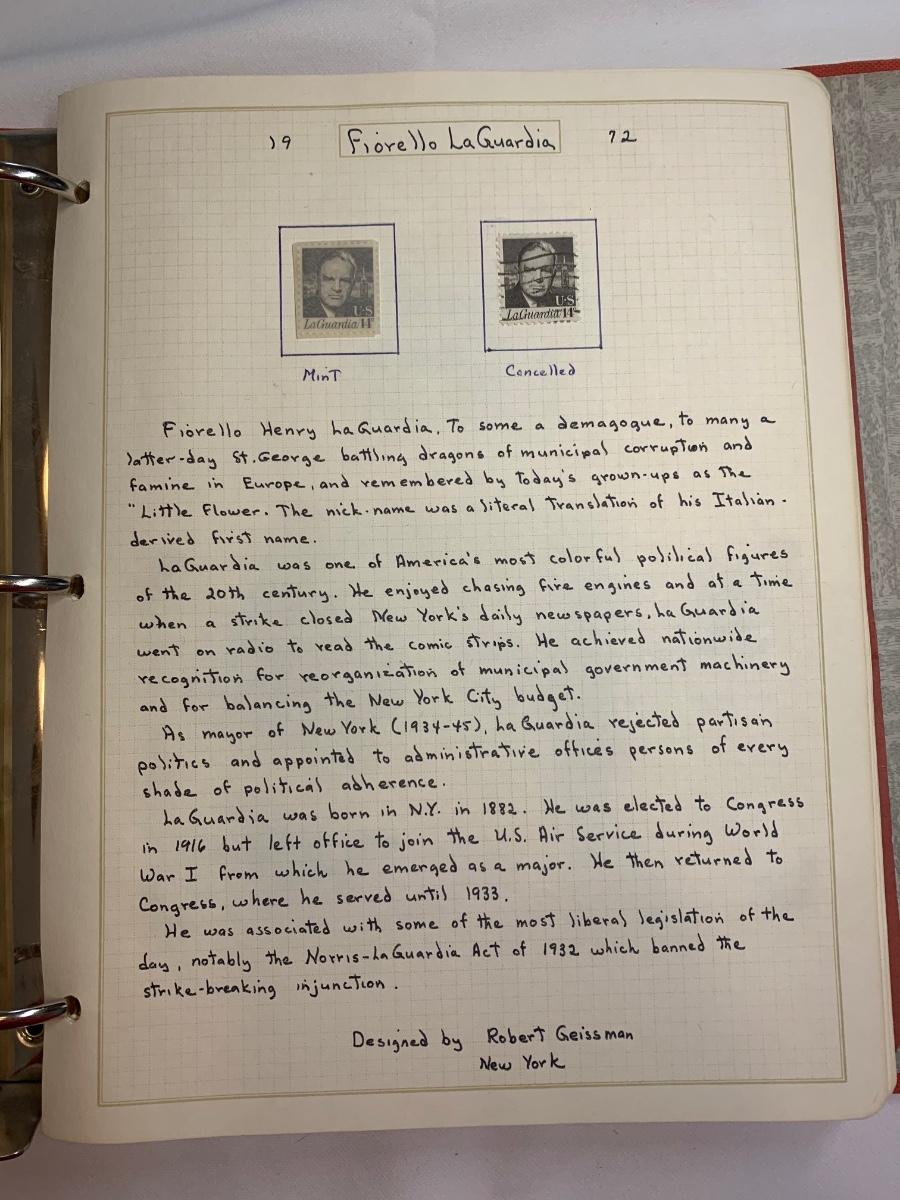 19 Fiorello LaGuardia 72
U·S
LaGuardia 14¢
U·S
LaGuardia 14¢
Mint
Cancelled
Fiorello Henry LaGuardia, To some a demagogue, to many a
latter-day St. George battling dragons of municipal corruption and
famine in Europe, and remembered by today's grown-ups as The
"Little Flower. The nick-name was a literal translation of his Italian-
derived first name.
LaGuardia was one of America's most colorful political figures
of the 20th century. He enjoyed chasing fire engines and at a time
when a strike closed New York's daily newspapers, LaGuardia
went on radio to read the comic strips. He achieved nationwide
recognition for reorganization of municipal government machinery
and for balancing the New York City budget.
As mayor of New York (1934-45), LaGuardia rejected partisan
politics and appointed to administrative offices persons of every
shade of political adherence.
LaGuardia was born in N.Y. in 1882. He was elected to Congress
in 1916 but left office to join the U.S. Air Service during World
War I from which he emerged as a major. He then returned to
Congress, where he served until 1933.
He was associated with some of the most liberal legislation of the
day, notably the Norris-LaGuardia Act of 1932 which banned the
strike-breaking injunction.
Designed by Robert Geissman
New York